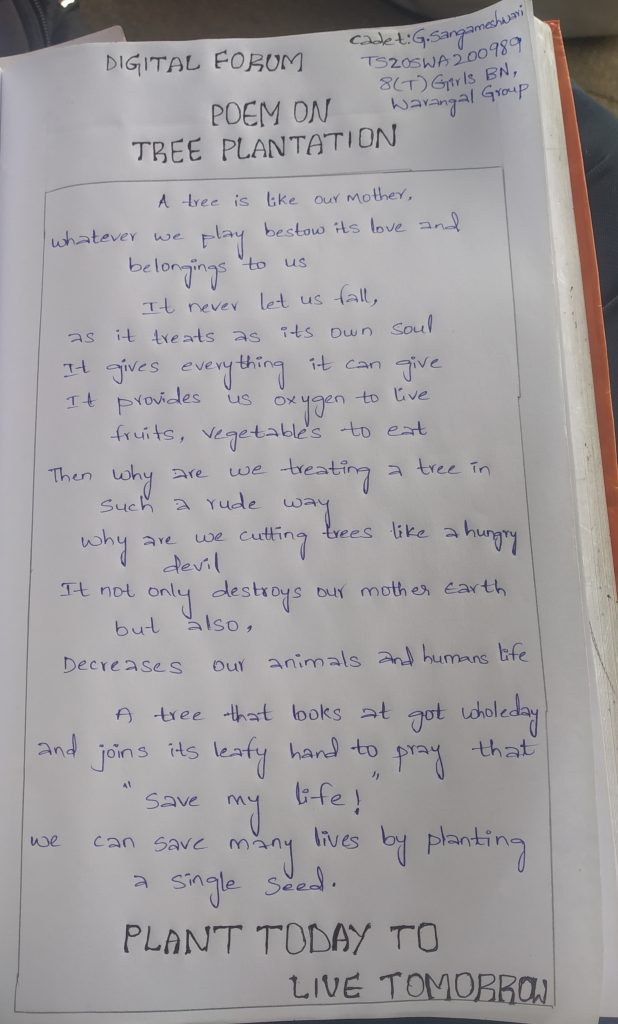 DIGITAL FORUM
Cadet: G. Sangameshwari
TS20SWA200989
8(T) Girls BN,
Warangal Group
POEM ON
TREE PLANTATION
A tree is like our mother,
whatever we play bestow its love and
belongings to us
It never let us fall,
as it treats as its own soul
It gives everything it can give
It provides us oxygen to live
fruits, vegetables to eat
Then why are we treating a tree in
such a rude way
why are we cutting trees like a hungry
devil
It not only destroys our mother Earth
but also,
Decreases our animals and humans life
A tree that looks at got wholeday
and joins its leafy hand to pray that
"Save my life!"
we can save many lives by planting
a single seed.
PLANT TODAY TO
LIVE TOMORROW